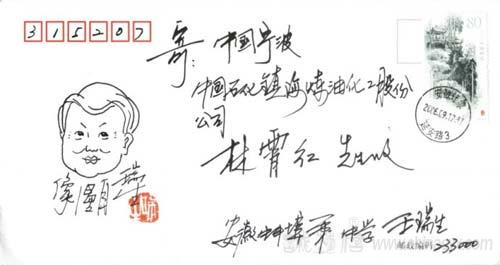 315207
80
寄：中国宁波
中国石化镇海炼油化工股份
公司
林霄红 先生收
延安路3
安徽 蚌埠 中学 王瑞生
邮政编码 233000